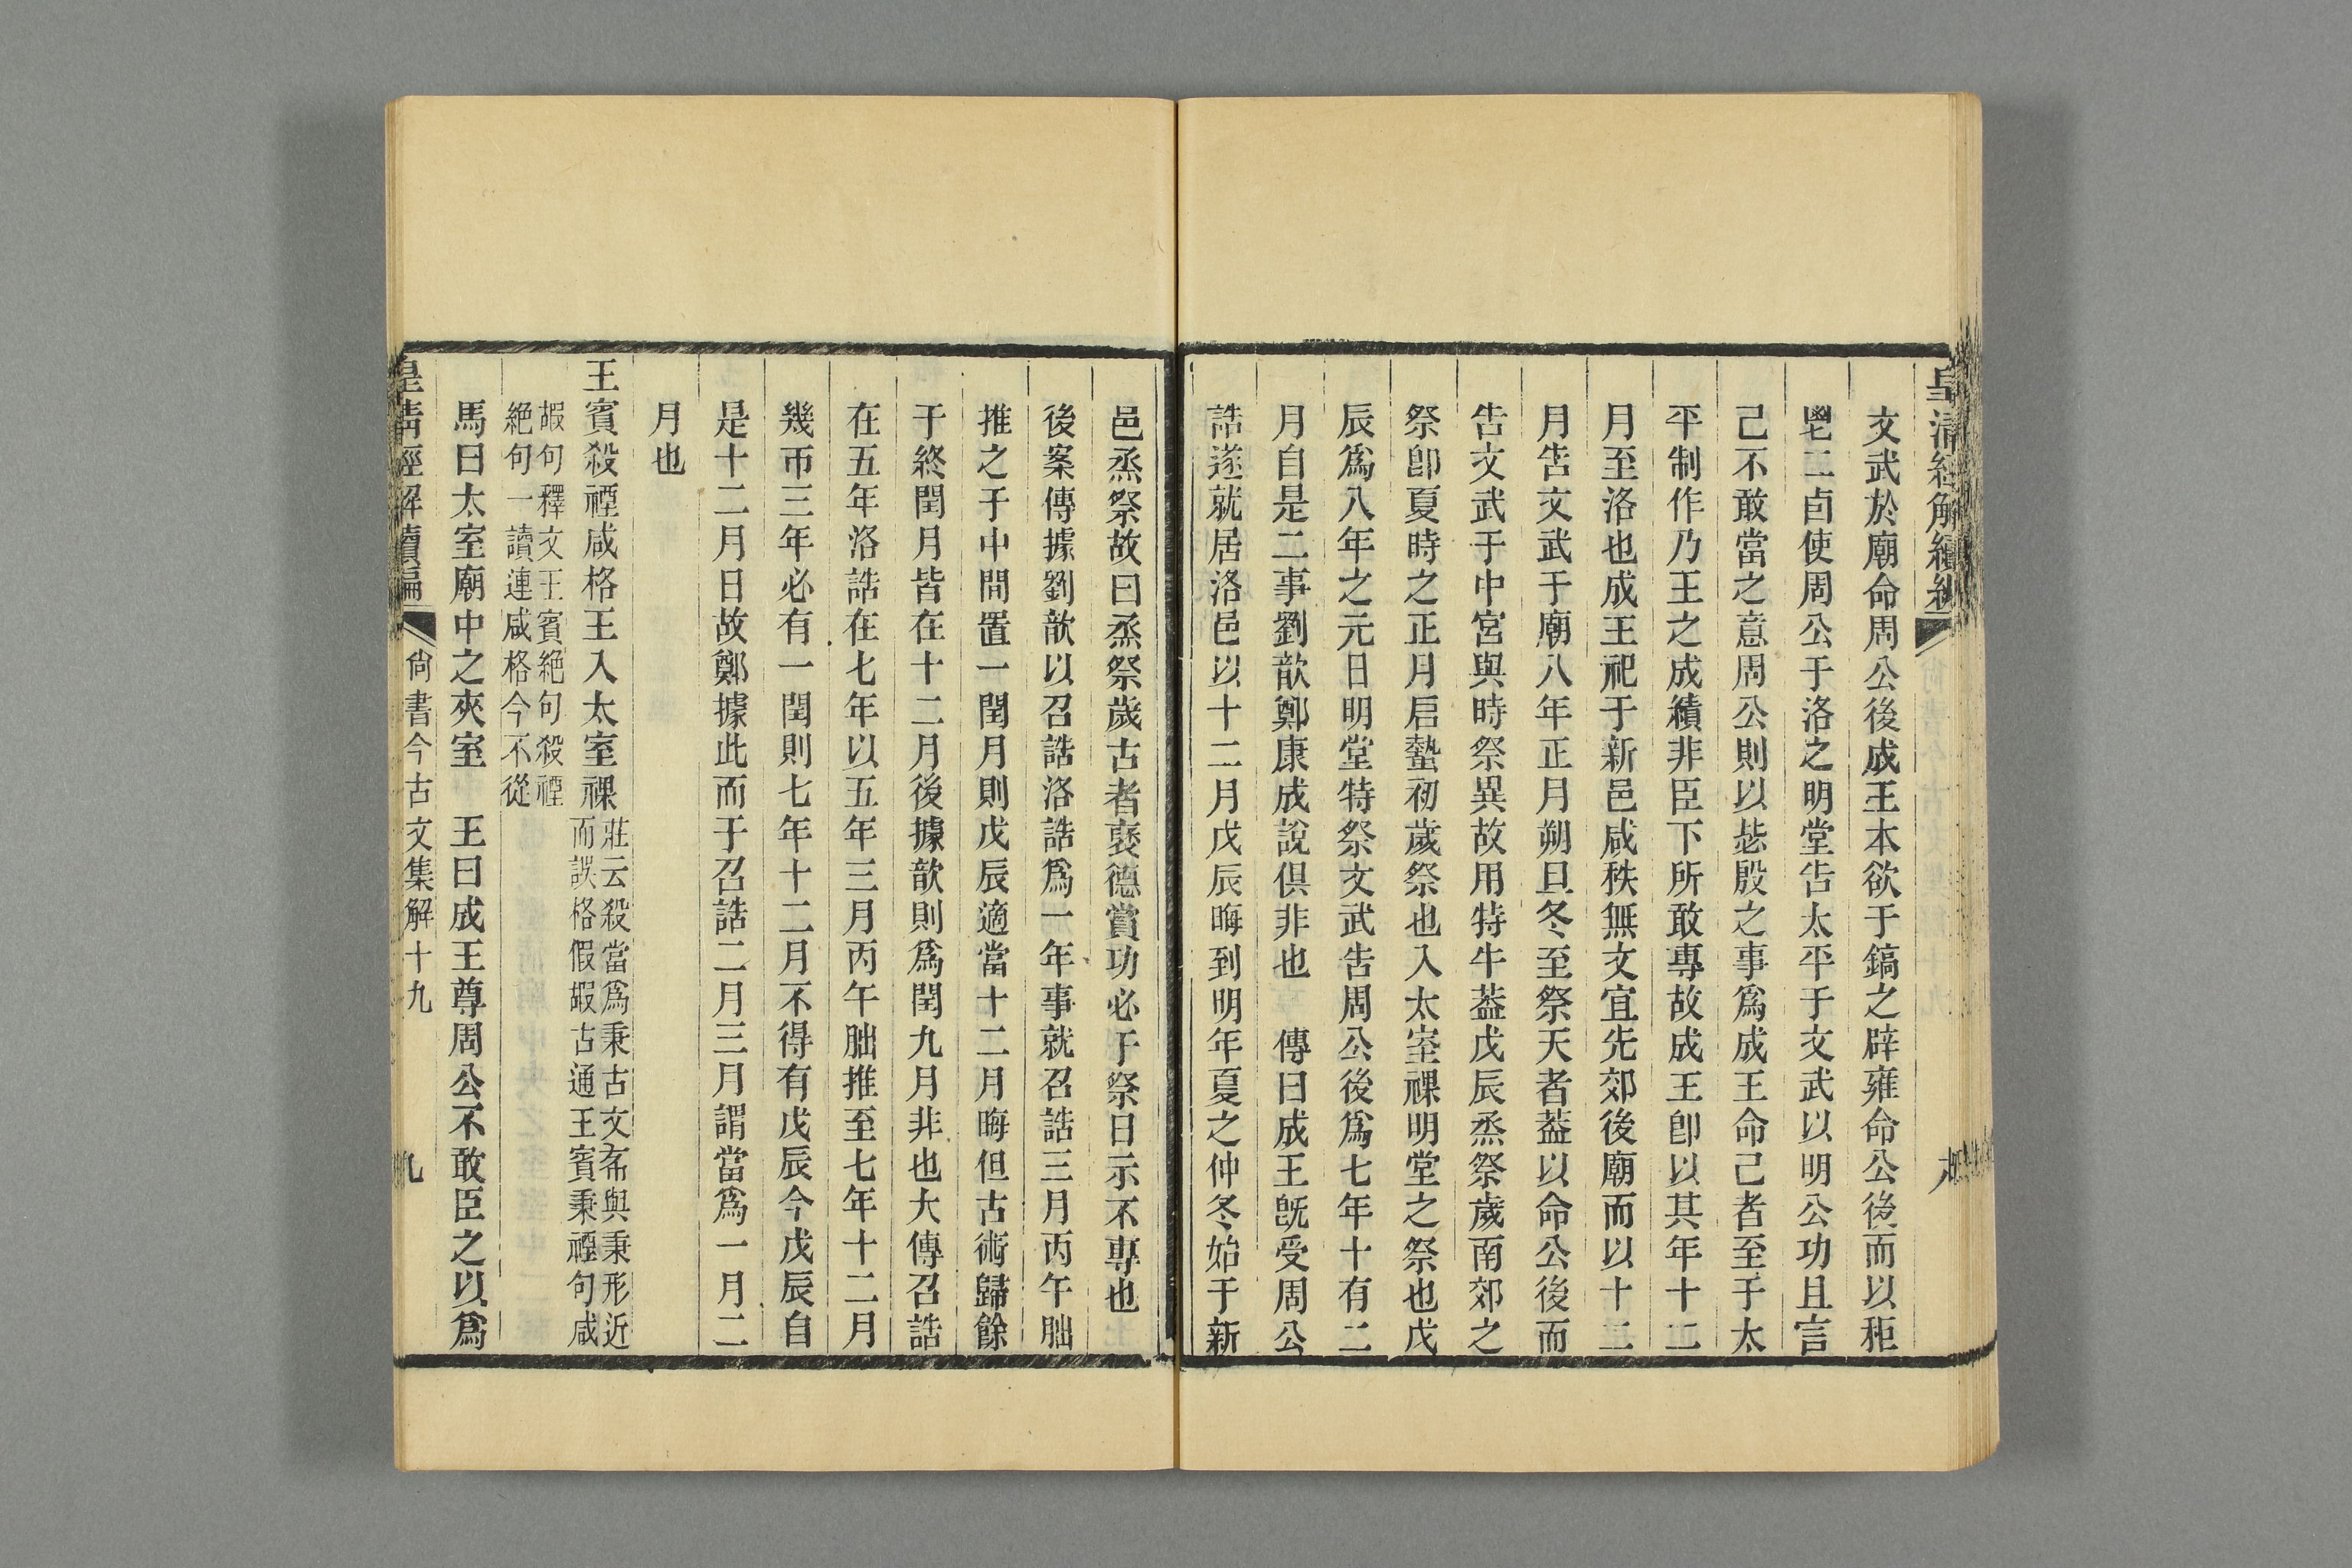 皇清經解續編
文武於廟命周公後成王本欲于鎬之辟雍命公後而以秬
鬯二卣使周公于洛之明堂告太平于文武以明公功且言
己不敢當之意周公則以毖殷之事爲成王命己者至于太
平制作乃王之成績非臣下所敢專故成王卽以其年十二
月至洛也成王祀于新邑咸秩無文宜先郊後廟而以十二
月告文武于廟八年正月朔旦冬至祭天者葢以命公後而
告文武于中宮與時祭異故用特牛葢戊辰烝祭歲南郊之
祭卽夏時之正月启蟄初歲祭也入太室祼明堂之祭也戊
辰爲八年之元日明堂特祭文武告周公後爲七年十有二
月自是二事劉歆鄭康成說俱非也　傳曰成王旣受周公
誥遂就居洛邑以十二月戊辰晦到明年夏之仲冬始于新
邑烝祭故曰烝祭歲古者襃德賞功必于祭日示不專也
後案傳據劉歆以召誥洛誥爲一年事就召誥三月丙午朏
推之于中間置一閏月則戊辰適當十二月晦但古術歸餘
于終閏月皆在十二月後據歆則爲閏九月非也大傳召誥
在五年洛誥在七年以五年三月丙午朏推至七年十二月
幾帀三年必有一閏則七年十二月不得有戊辰今戊辰自
是十二月日故鄭據此而于召誥二月三月謂當爲一月二
月也
王賓殺禋咸格王入太室祼
莊云殺當爲秉古文𣏂與秉形近
而誤格假嘏古通王賓秉禋句咸
嘏句釋文王賓絕句殺禋
絕句一讀連咸格今不從
馬曰太室廟中之夾室　王曰成王尊周公不敢臣之以爲
皇清經解續編
尙書今古文集解十九
九